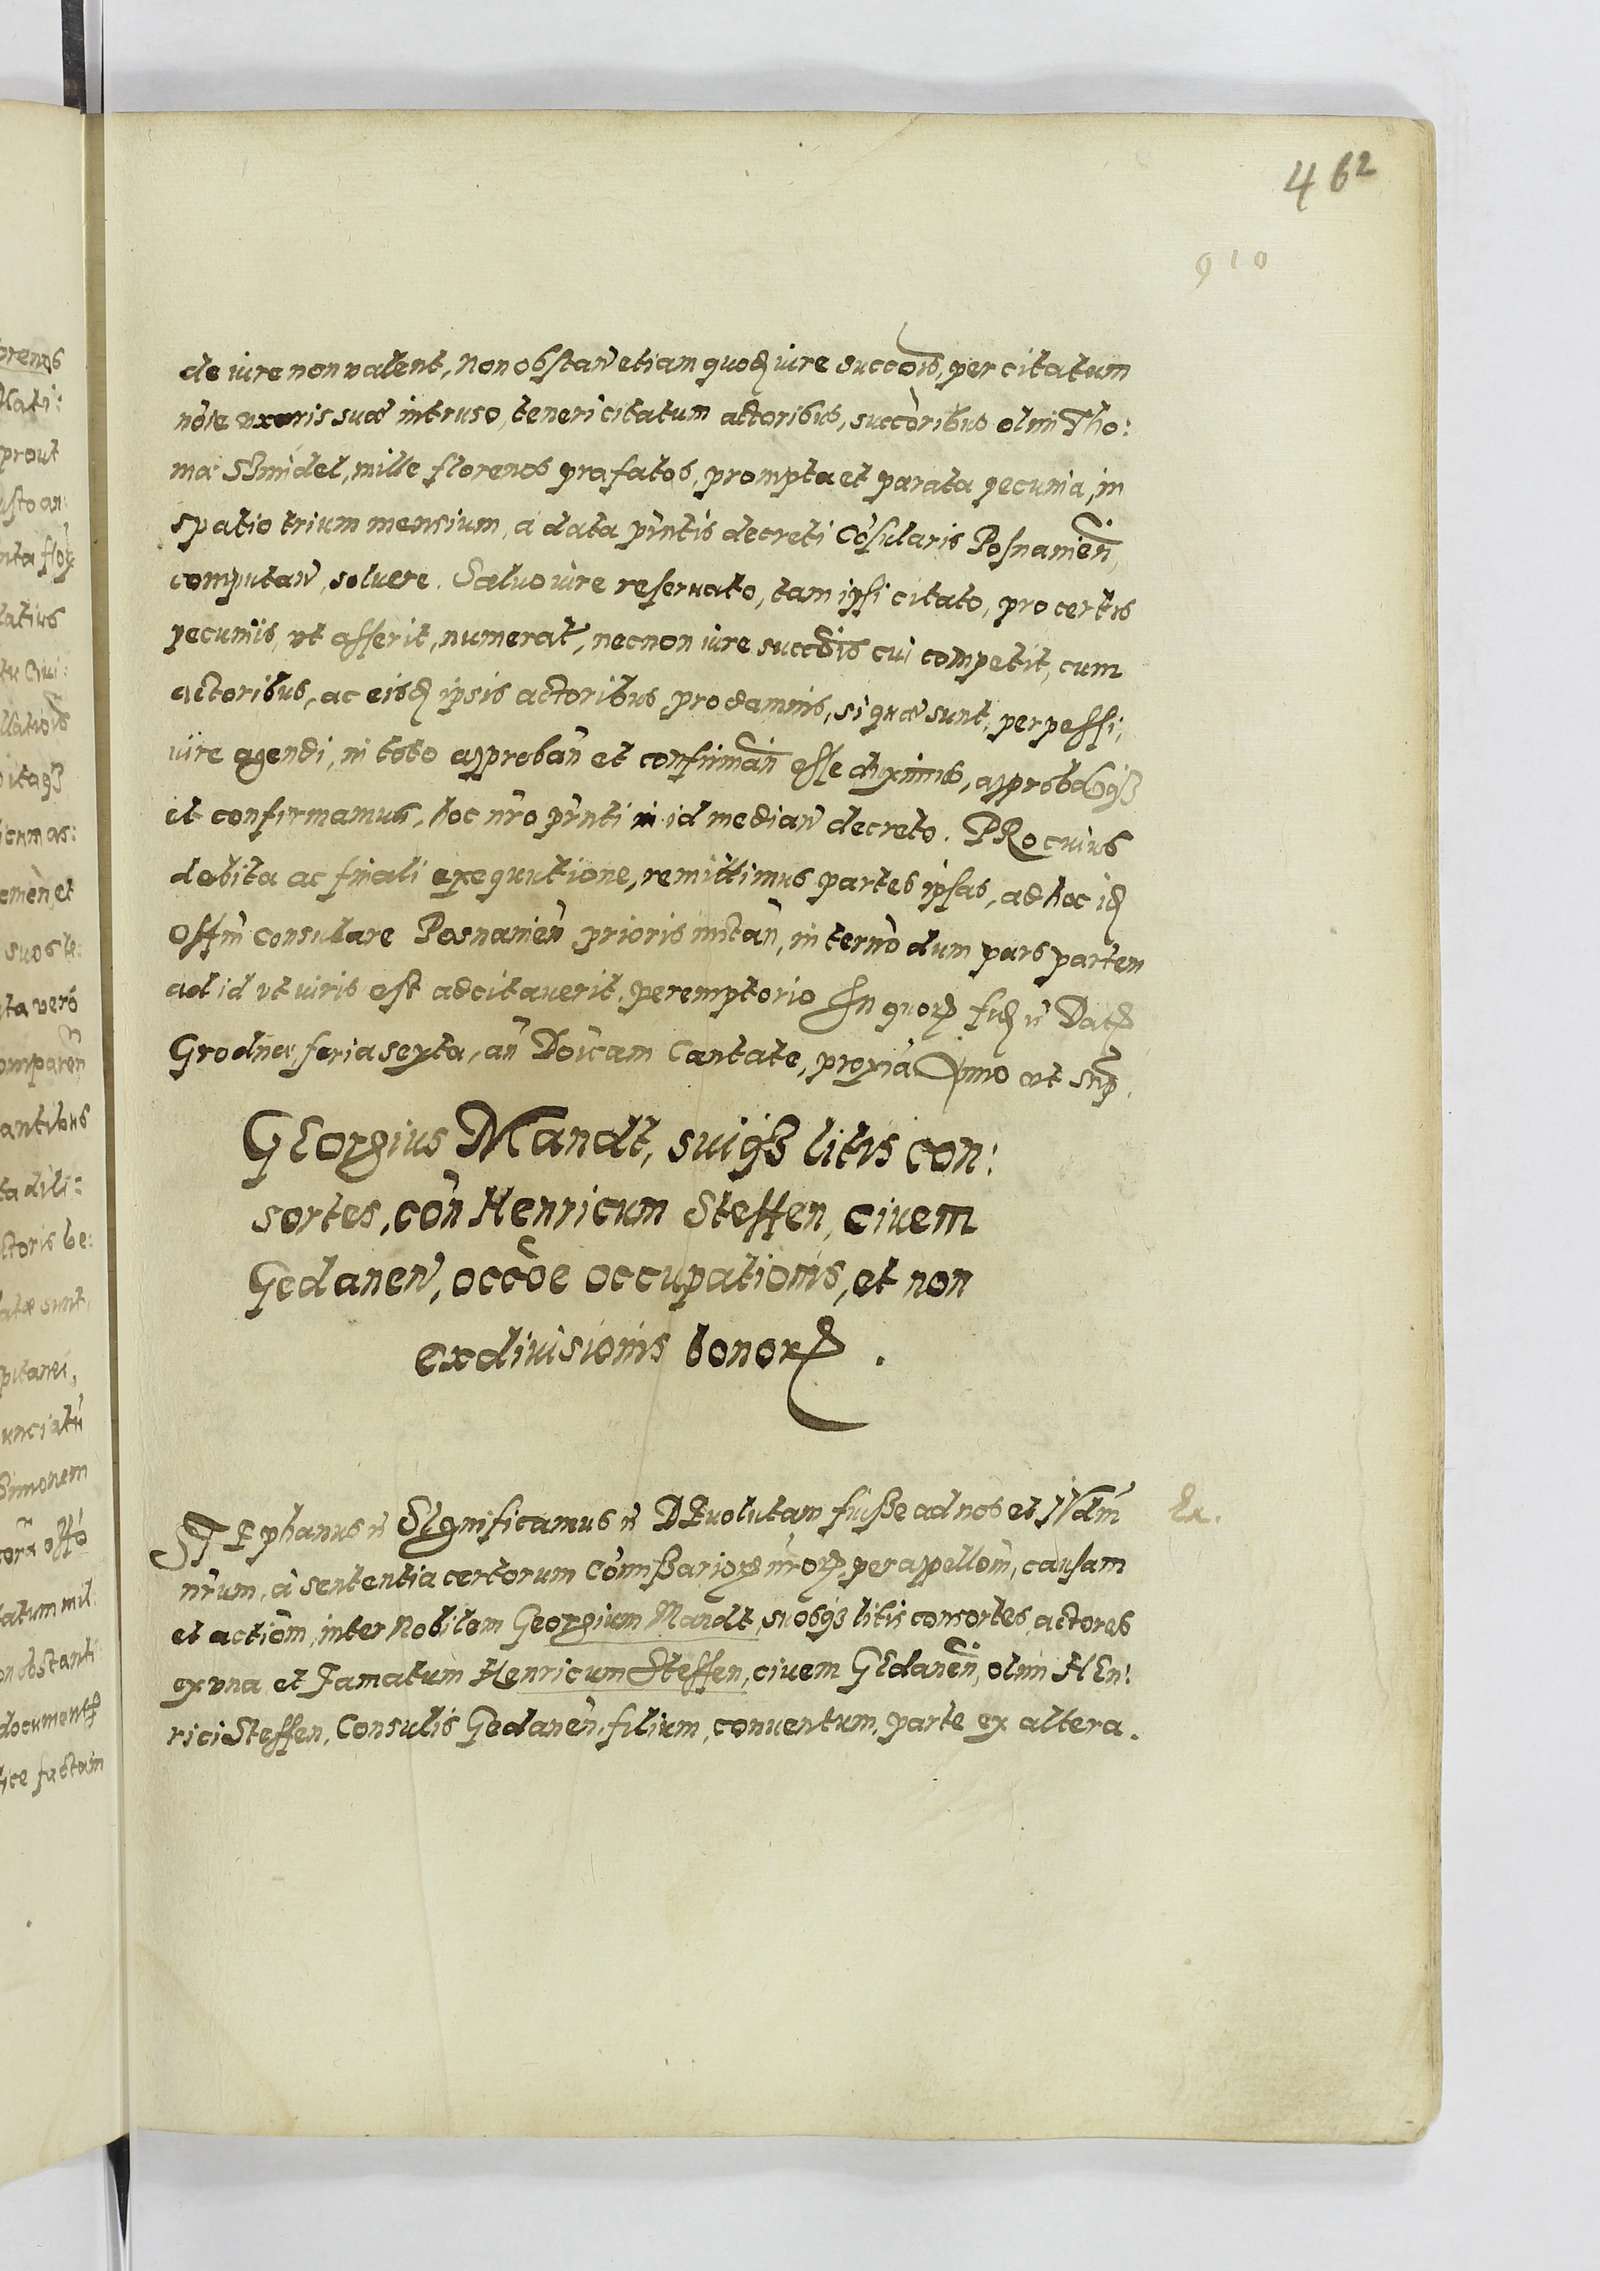 462
910
de iure non valent, Non obstan̄ etiam quoď iure succ̄ōis, per citatum
nōīe vxoris suæ intruso, teneri citatum actoribus, succ̄oribus olim Tho:
mæ Szmidel, mille florenos præfatos, prompta et parata pecunia, in
spatio trium mensium, a data pn̄tis decreti Cōsularis Posnanien̄,
computan̄, soluere. Saluo iure reseruato, tam ipsi citato, pro certis
pecunijs, vt asserit, numerat̄, necnon iure succ̄ōis cui competit, cum
actoribus, ac eisď ipsis actoribus pro damnis, si quæ sunt, perpessi,
iure agendi, in toto approban̄ et confirman̄ esse diximus,
et confirmamus, hoc nr̄o pn̄ti in id median̄ decreto. PRo cuius
debita ac finali exequutione, remittimus partes ipsas, ad hoc iď
Offm̄ Consulare Posnanien̄ prioris instan̄, in termō dum pars partem
ad id vt iuris est adcitauerit, peremptorio In quorꝝ fiď ꝛc̄ Datꝝ
Grodnæ feria sexta, an̄ Dōīcam Cantate, proxīa Anno vt sup̄.
GEorgius Mandt, suiqꝫ litis con:
sortes, cōn Henricum Steffen, ciuem
Gedanen̄, occ̄ōe occupationis, et non
exdiuisionis bonorꝝ.
STEphanus ꝛc̄ SIgnificamus ꝛc̄ DEuolutam fuisse ad nos et Iudm̄
nr̄um, à sententia certorum Com̄issariorꝝ nr̄orꝝ per appellōm̄, causam
et actiōm, inter Nobilem Georgium Mandt, suosqꝫ litis consortes, actores
ex vna, et Famatum Henricum Steffen, ciuem GEdanen̄, olim HEn:
rici Steffen, Consulis Gedanen̄, filium, conuentum, parte ex altera.
Ex.